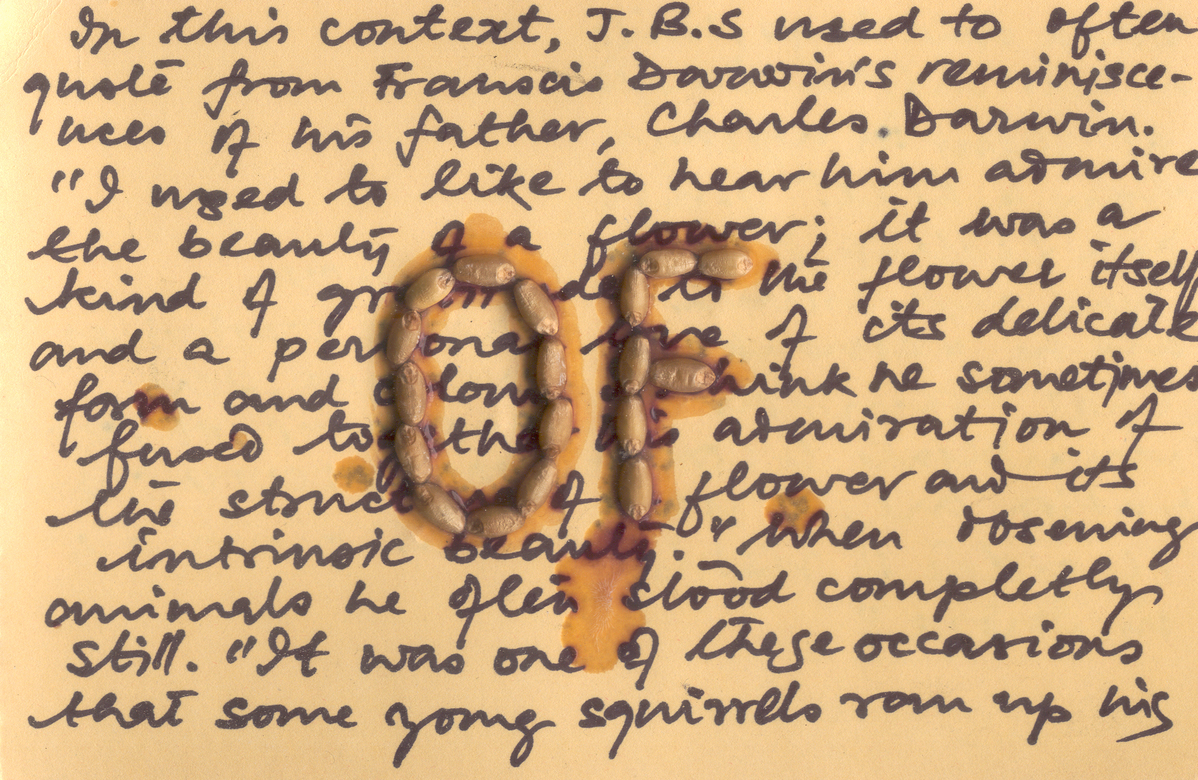 In this context, J.B.S used to often
quote from Francis Darwin's reminisce-
nces of his father, Charles Darwin.
"I used to like to hear him admire
the beauty of a flower; it was a
kind of to the flower itself
and a personal love of its delicate
form and think he sometimes
fused together his admiration of
the structure of flower and its
intrinsic beauty." When observing
animals he often stood completly
still. "It was one of these occasions
that some young squirrels ran up his
OF